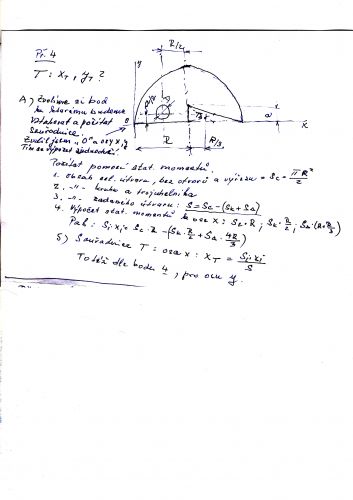 Př. 4
R/2
T: xT, yT ?
y
A) Zvolíme si bod
ke kterému budeme
vztahovat a počítat
souřadnice.
Zvolil jsem "0" a osy x, y
R
R/3
x
Počítat pomocí stat. momentů.
1. obsah cel. útvaru, bez otvorů a výřezu = Sc = πR²/2
2. -"- kruhu a trojúhelníka
3. -"- zadaného útvaru: S = Sc - (Sk + SΔ)
4. Výpočet stat. momentů k ose x: Sc·R ; Sk·R/2 ; SΔ·(R+R/3)
Pak: Sj·xj = Sc·R - (Sk·R/2 + SΔ·4R/3)
5) Souřadnice T: osa x: xT = Sj·xj/S
Totéž dle bodu 4, pro osu y.